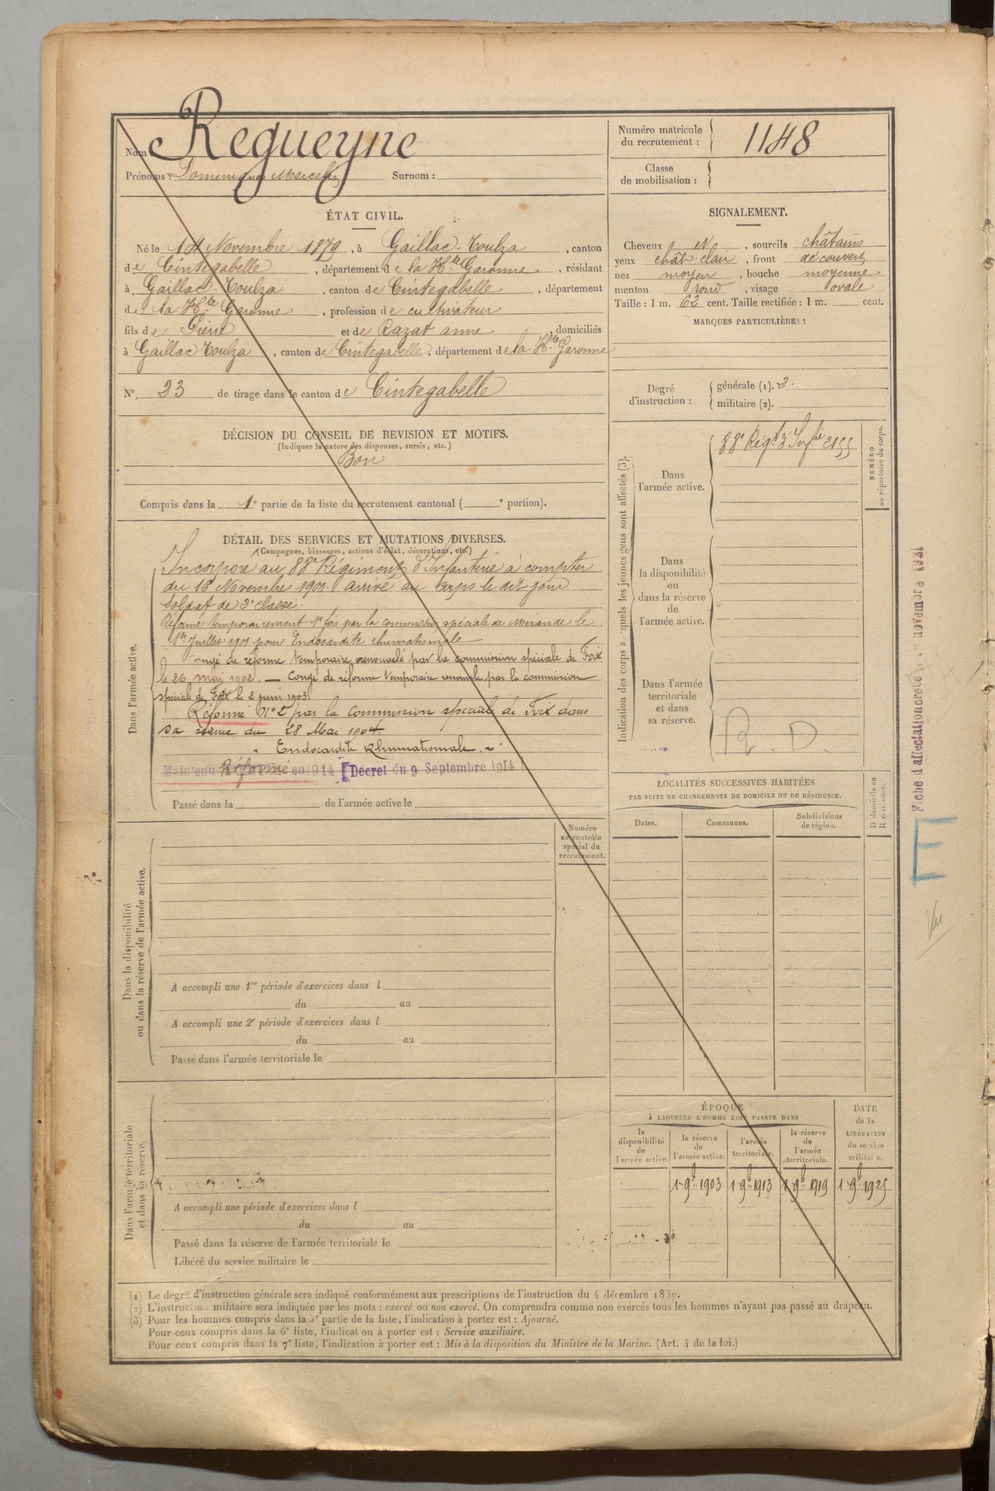 Nom Regueyne
Prénoms : Dominique Marcelin Surnom :
Numéro matricule
du recrutement : 1148
Classe
de mobilisation :
ÉTAT CIVIL.
Né le 14 Novembre 1879, à Gaillac-Toulza, canton
de Cintegabelle, département de la Hte Garonne, résidant
à Gaillac-Toulza, canton de Cintegabelle, département
de la Hte Garonne, profession de cultivateur
fils de Pierre et de Razat anne, domiciliés
à Gaillac Toulza, canton de Cintegabelle, département de la Hte Garonne
N°. 23 de tirage dans le canton de Cintegabelle
SIGNALEMENT.
Cheveux N, sourcils châtains
yeux chât-clair, front découvert
nez moyen, bouche moyenne
menton rond, visage ovale
Taille : 1 m. 62 cent. Taille rectifiée : 1 m. cent.
MARQUES PARTICULIÈRES :
Degré
d'instruction :
générale (1). 2.
militaire (2).
DÉCISION DU CONSEIL DE REVISION ET MOTIFS.
(Indiquer la nature des dispenses, sursis, etc.)
Bon
Compris dans la 1e partie de la liste du recrutement cantonal ( e portion).
DÉTAIL DES SERVICES ET MUTATIONS DIVERSES.
(Campagnes, blessures, actions d'éclat, décorations, etc.)
Dans l'armée active.
Incorporé au 88e Régiment d'Infanterie à compter
du 16 Novembre 1900. arrivé au corps le dit jour
Soldat de 2e classe.
Réformé temporairement 1re fois par la commission spéciale de Mirande le
1er Juillet 1901 pour Endocardite rhumatismale
Congé de réforme temporaire renouvelé par la commission spéciale de Foix
le 26 mai 1902. — Congé de réforme temporaire renouvelé par la commission
spéciale de Foix le 2 juin 1903.
Réformé N° 2 par la commission spéciale de Foix dans
sa séance du 28 Mai 1904
" Endocardite Rhumatismale. "
Maintenu Réformé en 1914 [Décret du 9 Septembre 1914
Passé dans la de l'armée active le
Indication des corps auxquels les jeunes gens sont affectés (3).
Dans
l'armée active.
88e Régt d'Infie
NUMÉRO
au répertoire du corps.
Dans
la disponibilité
ou
dans la réserve
de
l'armée active.
Dans l'armée
territoriale
et dans
sa réserve.
R. D.
Fiche d'affectation créée le novembre 1921
E
Vu
LOCALITÉS SUCCESSIVES HABITÉES
PAR SUITE DE CHANGEMENTS DE DOMICILE OU DE RÉSIDENCE.
Dates. Communes. Subdivisions
de région.
D domicile ou
R résidence.
Numéro
au contrôle
spécial du
recrutement.
Dans la disponibilité
ou dans la réserve de l'armée active.
A accompli une 1re période d'exercices dans l
du au
A accompli une 2e période d'exercices dans l
du au
Passé dans l'armée territoriale le
Dans l'armée territoriale
et dans sa réserve.
A accompli une période d'exercices dans l
du au
Passé dans la réserve de l'armée territoriale le
Libéré du service militaire le
ÉPOQUE
À LAQUELLE L'HOMME DOIT PASSER DANS
la
disponibilité
de
l'armée active.
la réserve
de
l'armée active.
l'armée
territoriale.
la réserve
de
l'armée
territoriale.
DATE
de la
LIBÉRATION
du service
militaire.
1 9bre 1903 1 9bre 1913 1 9bre 1919 1 9bre 1925
(1) Le degré d'instruction générale sera indiqué conformément aux prescriptions de l'instruction du 4 décembre 1889.
(2) L'instruction militaire sera indiquée par les mots : exercé ou non exercé. On comprendra comme non exercés tous les hommes n'ayant pas passé au drapeau.
(3) Pour les hommes compris dans la 5e partie de la liste, l'indication à porter est : Ajourné.
Pour ceux compris dans la 6e liste, l'indication à porter est : Service auxiliaire.
Pour ceux compris dans la 7e liste, l'indication à porter est : Mis à la disposition du Ministre de la Marine. (Art. 4 de la loi.)